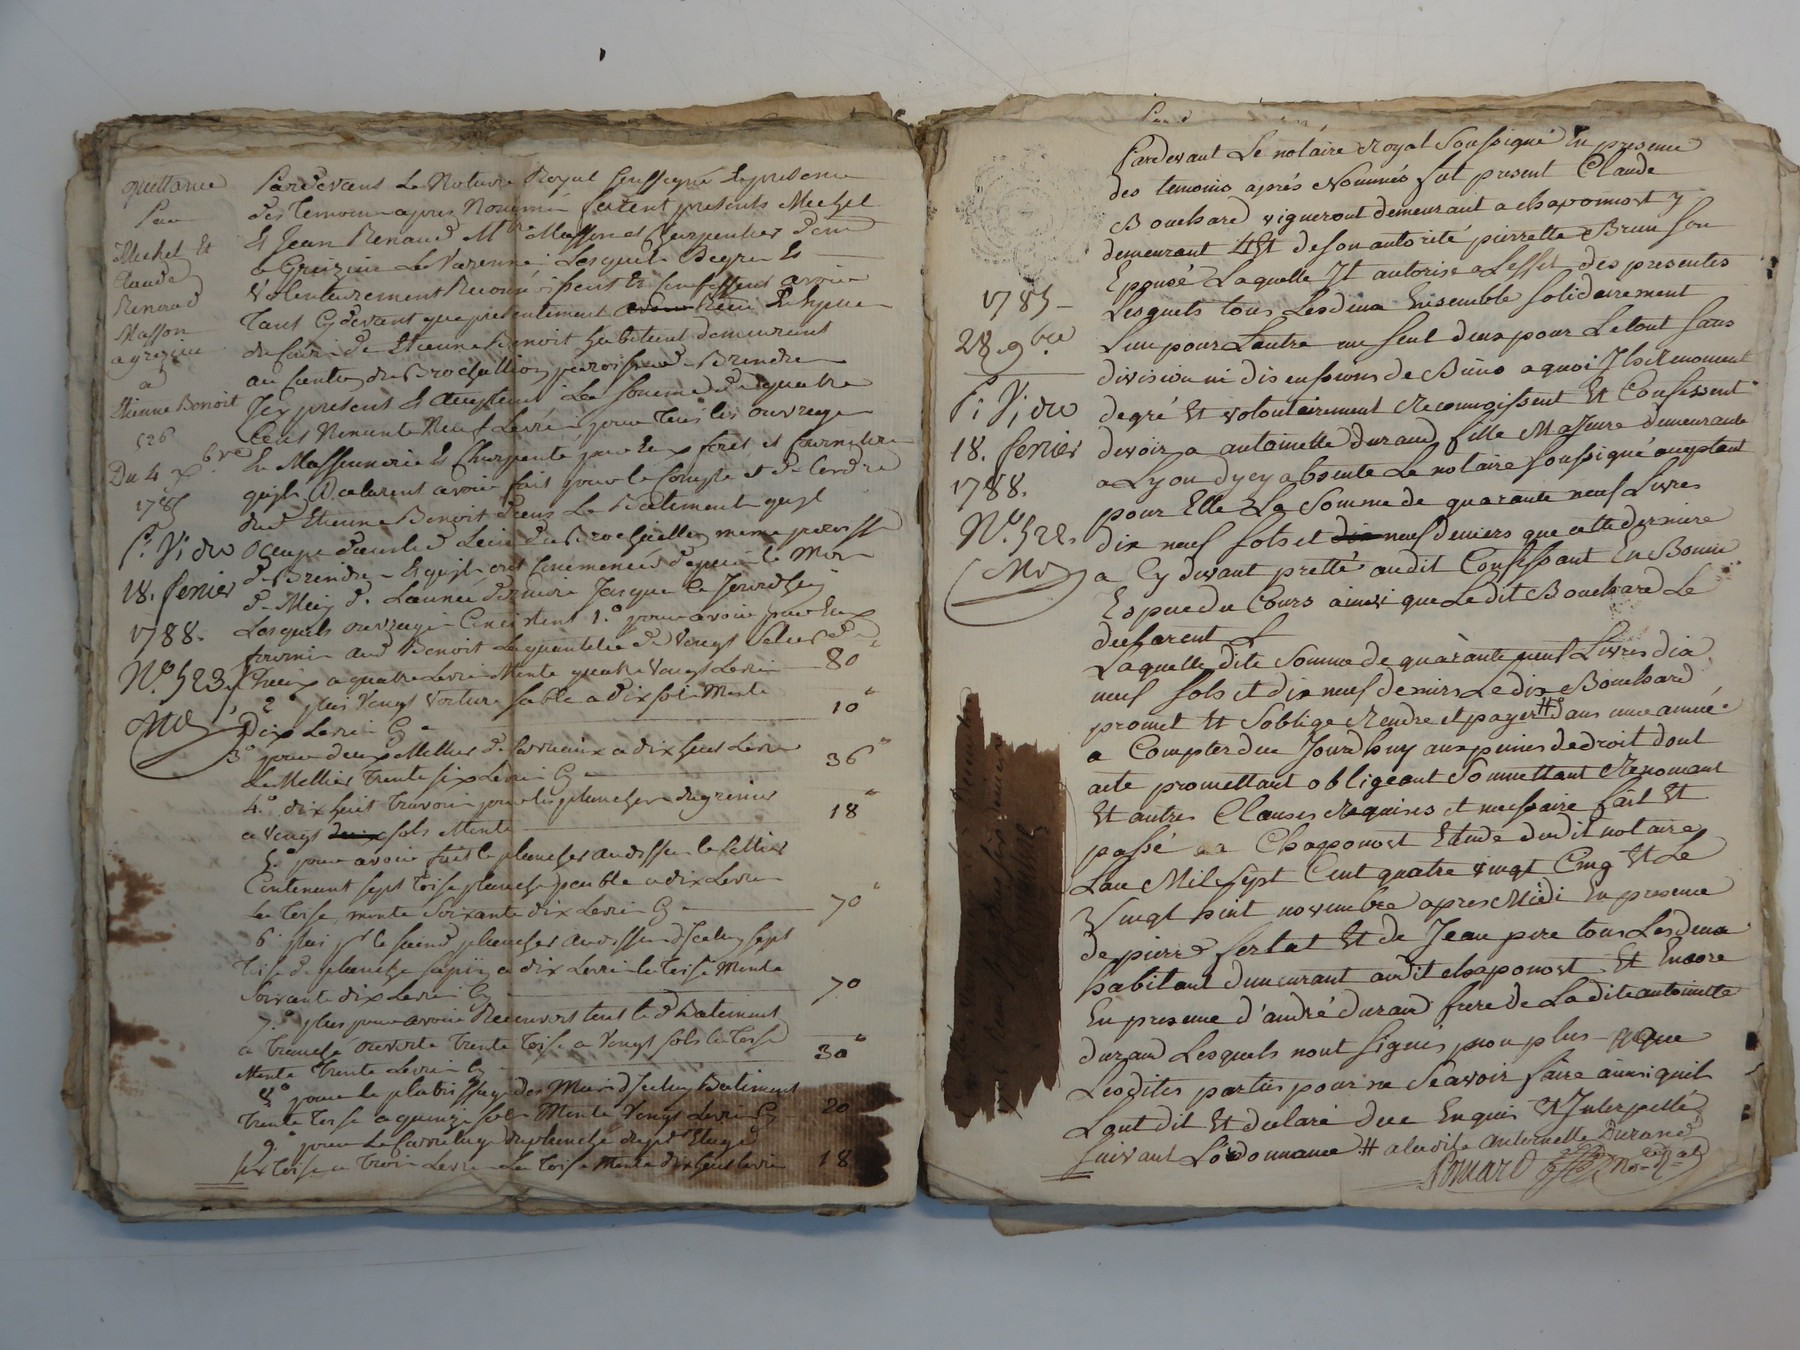 quittance
par
Michel Et
Claude
Renaud
Masson
a grezieu
a
Etienne Benoit
526
Du 4 xbre
1785
18. fevrier
1788.
N.o 523.
Pardevant Le Notaire Royal soussigné En presence
des temoins apres Nommés furent presents Michel
Et Jean Renaud Mtre Massons et Charpentier dem
a Grezieu La Varenne Lesquels Degré Et
Volontairement Reconnoissent Et Confessent avoir
tant Cy devant que presentement Receu En Espece
du Cours de Etienne Benoit habitant demeurant
au Canton du Brochaillon paroisse de Brindas
Icy present Et acceptant La somme de quatre
Cent Nonante Neuf Livres pour tous les ouvrages
En Massonnerie Et Charpente par Eux fait et fourniture
quils Declarent avoir fait pour le Compte et de Lordre
dud Etienne Benoit dans Le Batiment quil
occupe aud Lieu du Brochaillon meme paroisse
de Brindas Et quils ont Commencés depuis le Mois
de May de Lannée derniere Jusque a ce Jourdhuy
Lesquels ouvrages Consistent 1.o pour avoir par Eux
fourni aud Benoit La quantité de Vingt
a quatre Livres Monte quatre Vingt Livres 80
2o plus Vingt Voiture sable a dix sols Monte
Dix Livres Cy 10
3o pour deux Millier de Carreaux a dix huit Livres
Le Millier Trente six Livres Cy 36
4.o dix huit Travons pour les plancher du grenier
a Vingt sols Monte 18
5.o pour avoir fait le plancher au dessu le Cellier
Contenant sept Toise planche peuble a dix Livres
La Toise monte Soixante dix Livres Cy 70
6 plus pr le second plancher au dessu diceluy sept
Toise de planche sapin a dix Livres la Toise Monte
Soixante dix Livres Cy 70
7.o plus pour avoir Recouvert tout le d Batiment
a Tranché ouverte Trente Toise a Vingt sols la Toise
Monte Trente Livres Cy 30
8o pour le platrissage des Murs dicelui Batiment
Trente Toise a quinze sols Monte Vingt Livres Cy 20
9o pour Le Carrelage du planché du pr Etage
six Toise a Trois Livres La Toise Monte dix huit Livres 18
1785
28. 9bre
18. fevrier
1788.
N.o 522.
Pardevant Le notaire Royal Soussigné En presence
des temoins aprés Nommés fut present Claude
Bouchard vigneront demeurant a chaponost y
demeurant Et de son autorité pierrette Brun son
Epouse Laquelle Il autorise a Leffet des presentes
Lesquels tous Lesdeux Ensemble solidairement
Lun pour Lautre un seul deux pour Letout sans
division ni discussions de Biens a quoi Ils Renoncent
degré Et volontairement Reconnoissent Et Confessent
devoir a antoinette durand fille Majeure demeurante
a Lyon dycy absente Le notaire soussigné aceptant
pour Elle La Somme de quarante neuf Livres
dix neuf sols et neuf deniers que cette derniere
a Cy devant pretté audit Confessant En Bonne
Espece du Cours ainsi que Ledit Bouchard Le
declarent
Laquelle dite Somme de quarante neuf Livres dix
neuf sols et dix neuf deniers Ledit Bouchard
promet Et soblige Rendre et payer # dans une année
a Compter du Jourdhuy aux peines de droit dont
acte promettant obligeant Soumettant Renoncant
Et autres Clauses Requises et necessaire fait Et
passé a Chaponost Etude dudit notaire
Lan Mil sept Cent quatre vingt Cinq Et Le
Vingt huit novembre apres Midi En presence
de pierre ferlat Et de Jean pere tous Lesdeux
habitant demeurant audit chaponost Et Encore
En presence d'andré durand frere de Laditeantoinette
durand Lesquels nont signés non plus que
Lesdites parties pour ne Scavoir faire ainsi quil
Lont dit Et declaré de ce Enquis Et Interpellé
suivant Lordonnance # a ladite antoinette Durand